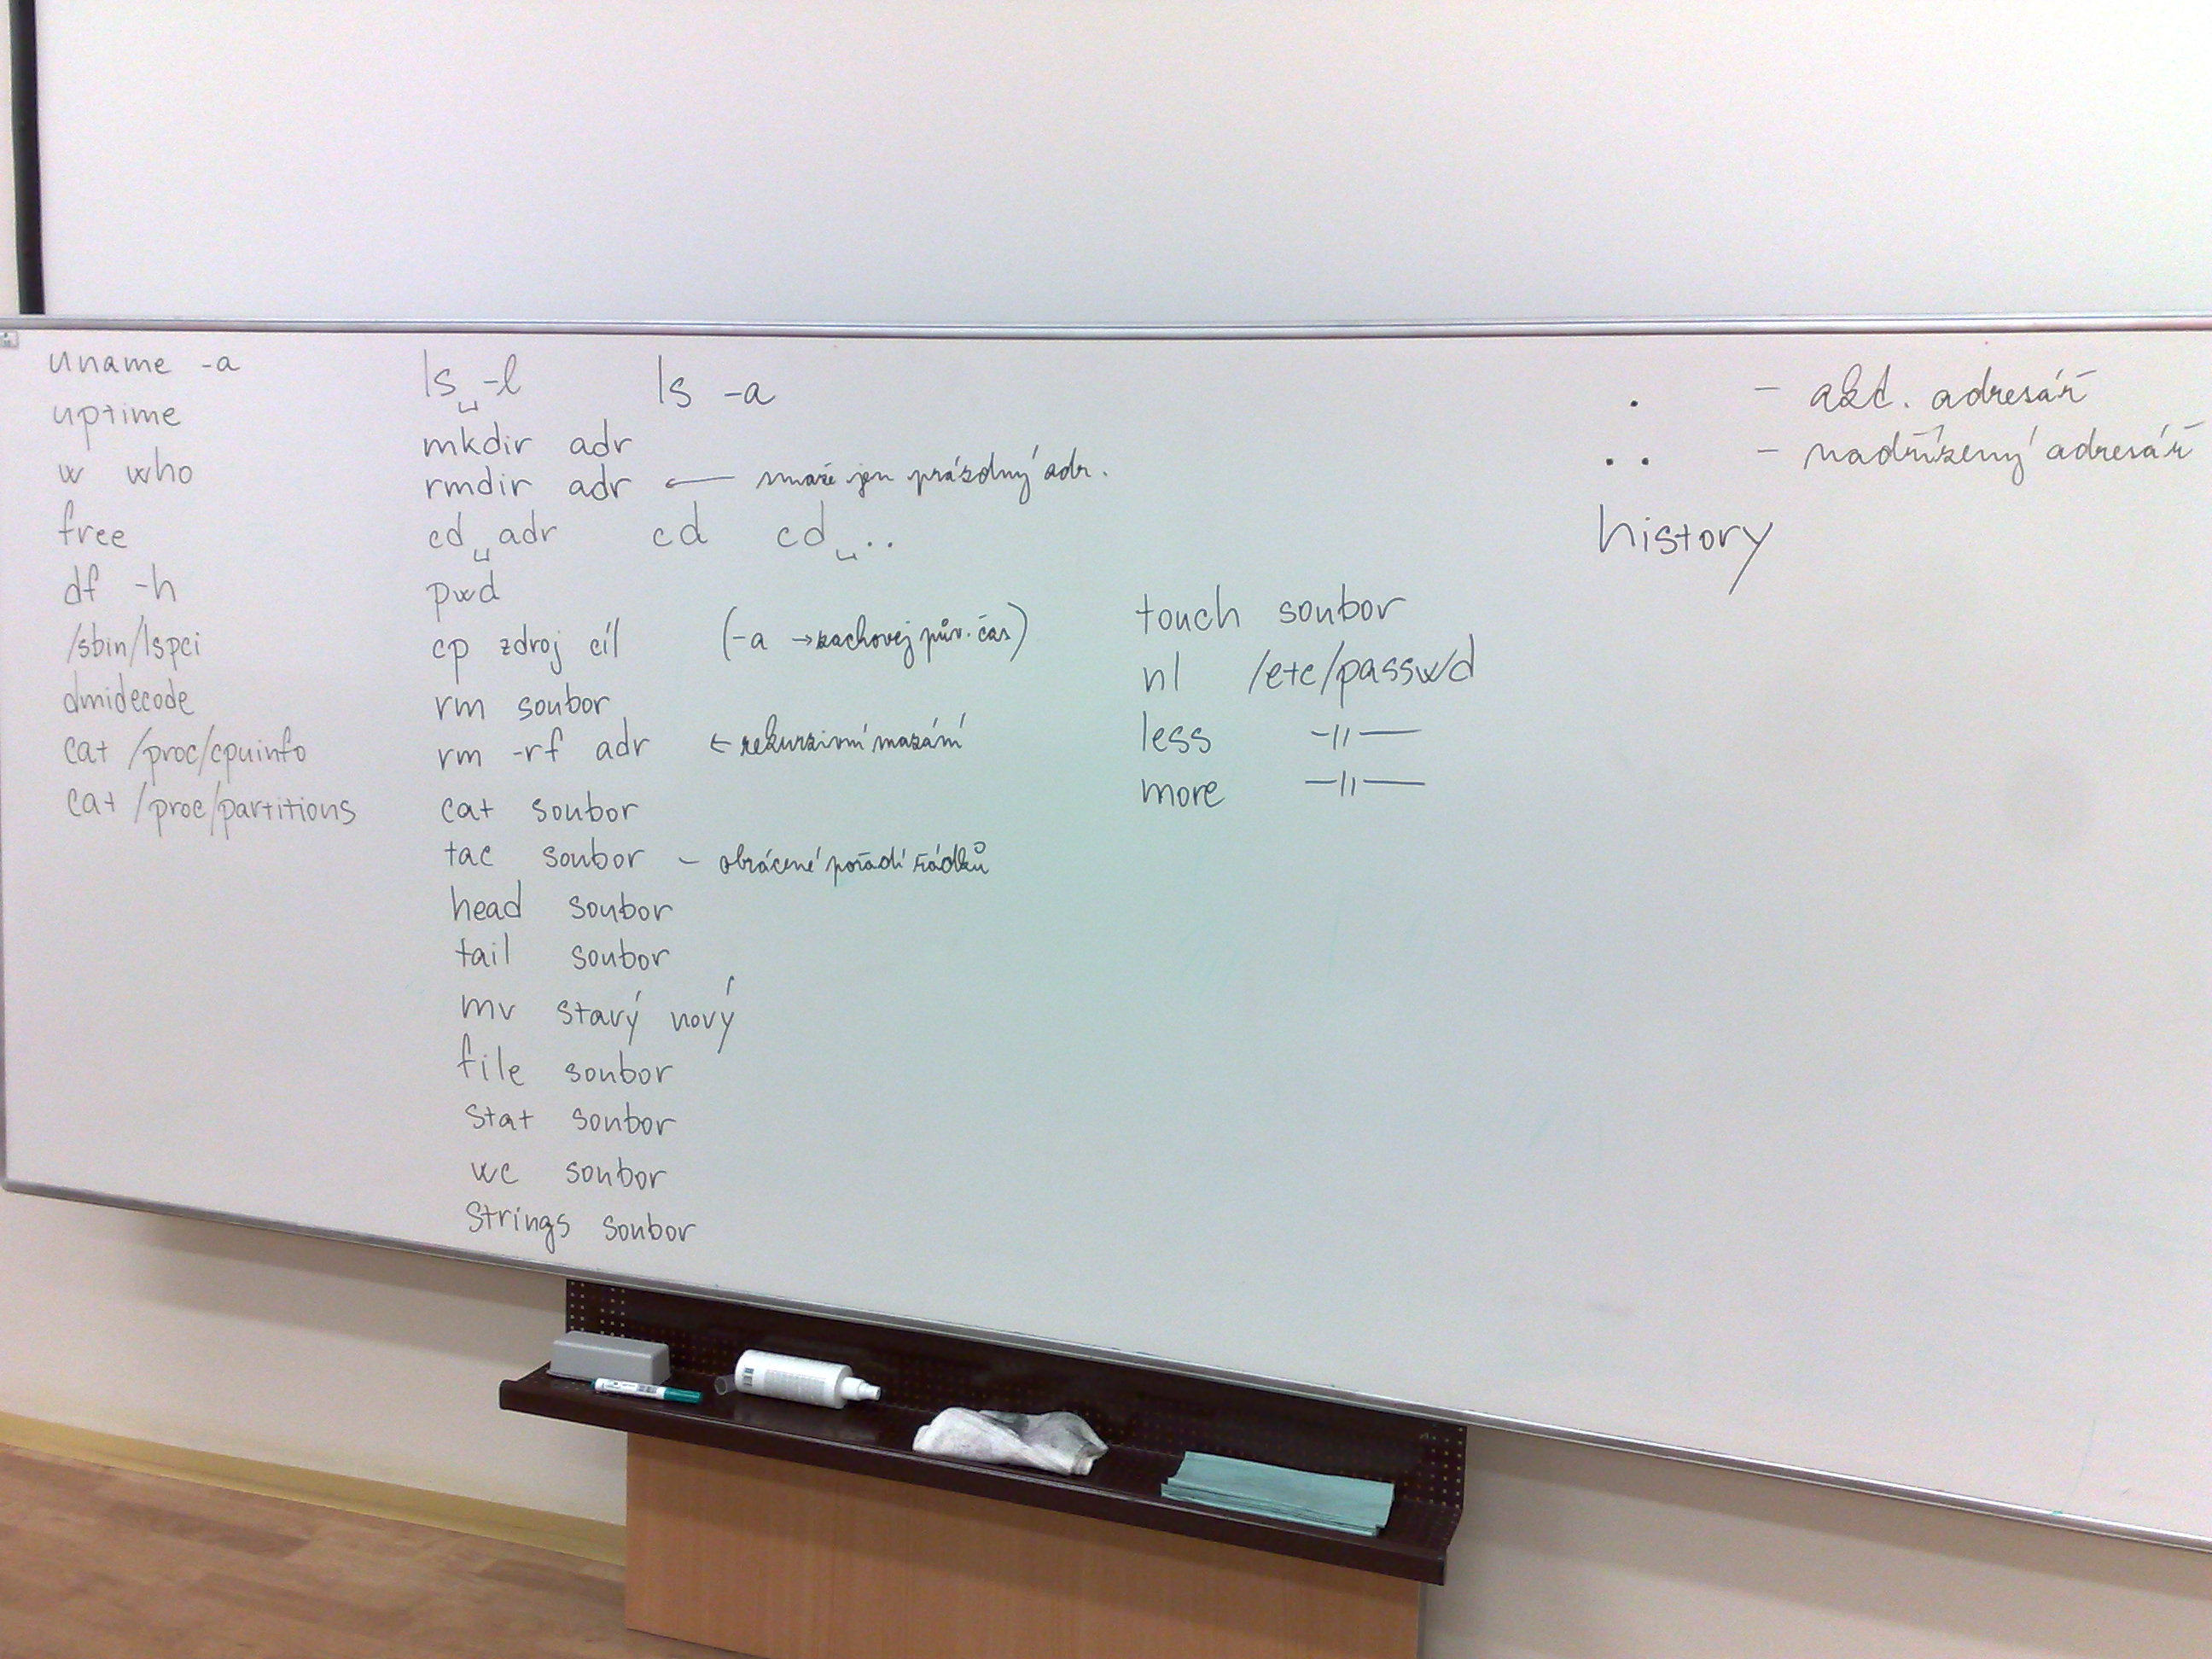 uname -a
uptime
w who
free
df -h
/sbin/lspci
dmidecode
cat /proc/cpuinfo
cat /proc/partitions
ls␣-l ls -a
mkdir adr
rmdir adr ← smaže jen prázdný adr.
cd␣adr cd cd␣..
pwd
cp zdroj cíl (-a → zachovej pův. čas)
rm soubor
rm -rf adr ← rekurzivní mazání
cat soubor
tac soubor - obrácené pořadí řádků
head soubor
tail soubor
mv starý nový
file soubor
stat soubor
wc soubor
strings soubor
touch soubor
nl /etc/passwd
less -||-
more -||-
. - akt. adresář
.. - nadřízený adresář
history